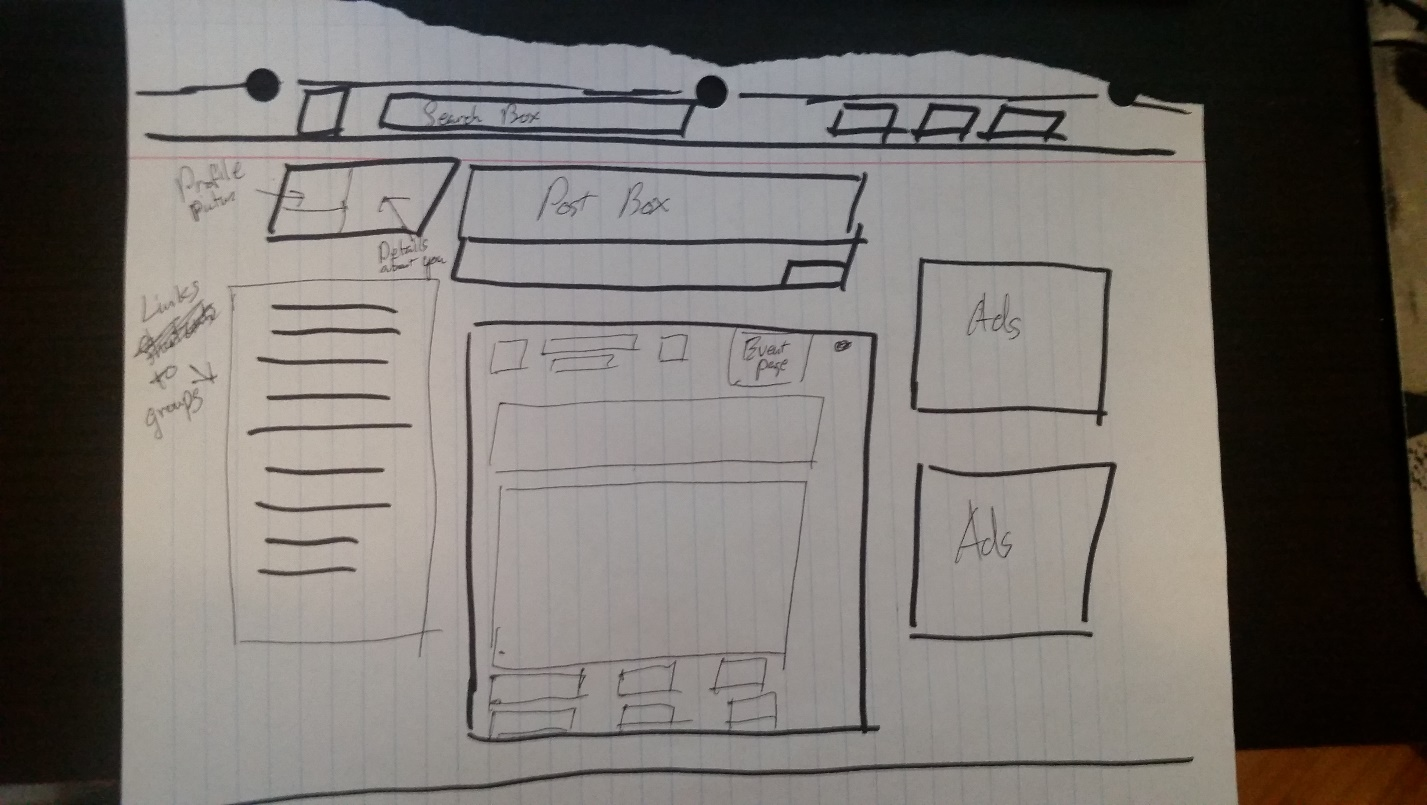 Search Box
Profile
Post Box
Details
about you
Links
to
groups
Event
page
Ads
Ads